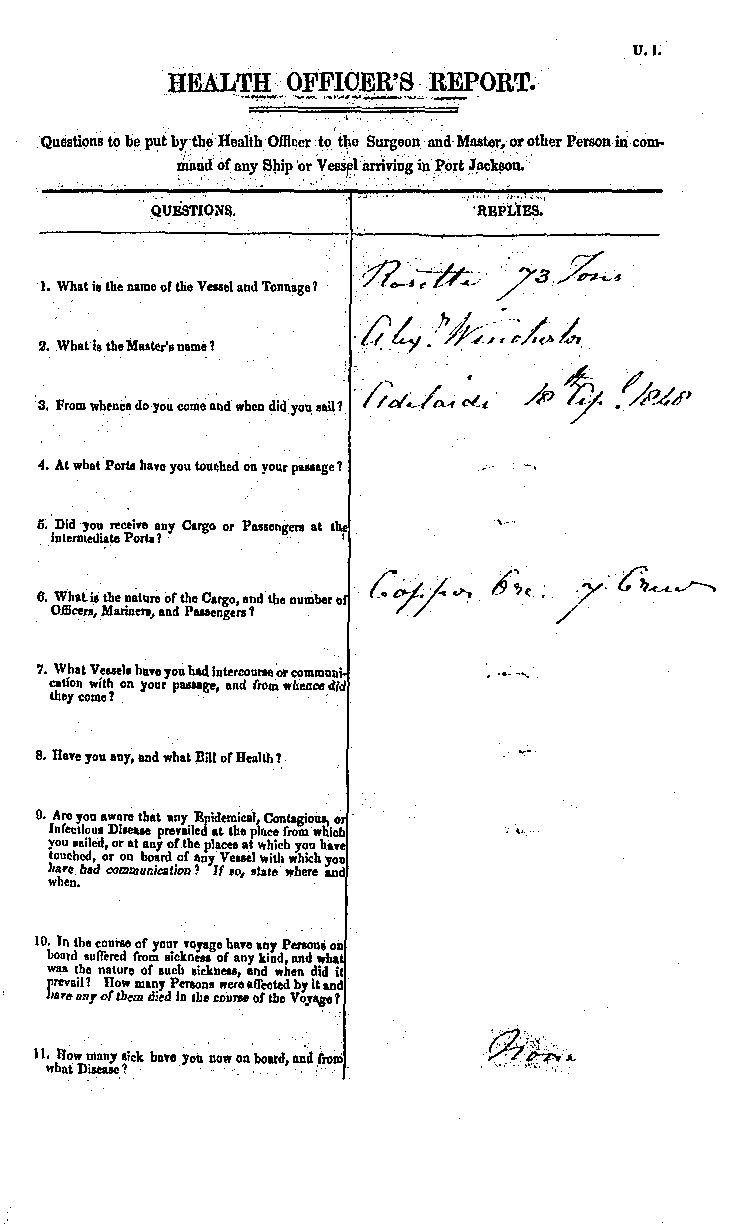 U. 1.
HEALTH OFFICER'S REPORT.
Questions to be put by the Health Officer to the Surgeon and Master, or other Person in com-
mand of any Ship or Vessel arriving in Port Jackson.
QUESTIONS.
REPLIES.
1. What is the name of the Vessel and Tonnage?
Rosetta 73 Tons
2. What is the Master's name?
Alexr. Winchester
3. From whence do you come and when did you sail?
Adelaide 18th Apl. 1848
4. At what Ports have you touched on your passage?
5. Did you receive any Cargo or Passengers at the
Intermediate Ports?
6. What is the nature of the Cargo, and the number of
Officers, Mariners, and Passengers?
Copper Ore. 7 Crew
7. What Vessels have you had intercourse or communi-
cation with on your passage, and from whence did
they come?
8. Have you any, and what Bill of Health?
9. Are you aware that any Epidemical, Contagious, or
Infectious Disease prevailed at the place from which
you sailed, or at any of the places at which you have
touched, or on board of any Vessel with which you
have had communication? If so, state where and
when.
10. In the course of your voyage have any Persons on
board suffered from sickness of any kind, and what
was the nature of such sickness, and when did it
prevail? How many Persons were affected by it and
have any of them died in the course of the Voyage?
11. How many sick have you now on board, and from
what Disease?
None